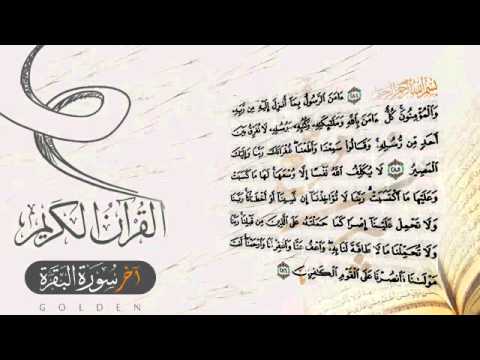 بسم الله الرحمن الرحيم
ءَامَنَ ٱلرَّسُولُ بِمَآ أُنزِلَ إِلَيْهِ مِن رَّبِّهِۦ
وَٱلْمُؤْمِنُونَ ۚ كُلٌّ ءَامَنَ بِٱللَّهِ وَمَلَٰٓئِكَتِهِۦ وَكُتُبِهِۦ وَرُسُلِهِۦ لَا نُفَرِّقُ بَيْنَ
أَحَدٍ مِّن رُّسُلِهِۦ ۚ وَقَالُوا۟ سَمِعْنَا وَأَطَعْنَا ۖ غُفْرَانَكَ رَبَّنَا وَإِلَيْكَ
ٱلْمَصِيرُ ﴿٢٨٥﴾ لَا يُكَلِّفُ ٱللَّهُ نَفْسًا إِلَّا وُسْعَهَا ۚ لَهَا مَا كَسَبَتْ
وَعَلَيْهَا مَا ٱكْتَسَبَتْ ۗ رَبَّنَا لَا تُؤَاخِذْنَآ إِن نَّسِينَآ أَوْ أَخْطَأْنَا ۚ رَبَّنَا
وَلَا تَحْمِلْ عَلَيْنَآ إِصْرًا كَمَا حَمَلْتَهُۥ عَلَى ٱلَّذِينَ مِن قَبْلِنَا ۚ رَبَّنَا
وَلَا تُحَمِّلْنَا مَا لَا طَاقَةَ لَنَا بِهِۦ ۖ وَٱعْفُ عَنَّا وَٱغْفِرْ لَنَا وَٱرْحَمْنَآ ۚ أَنتَ
مَوْلَىٰنَا فَٱنصُرْنَا عَلَى ٱلْقَوْمِ ٱلْكَٰفِرِينَ ﴿٢٨٦﴾
القرآن الكريم
آخر سورة البقرة
GOLDEN